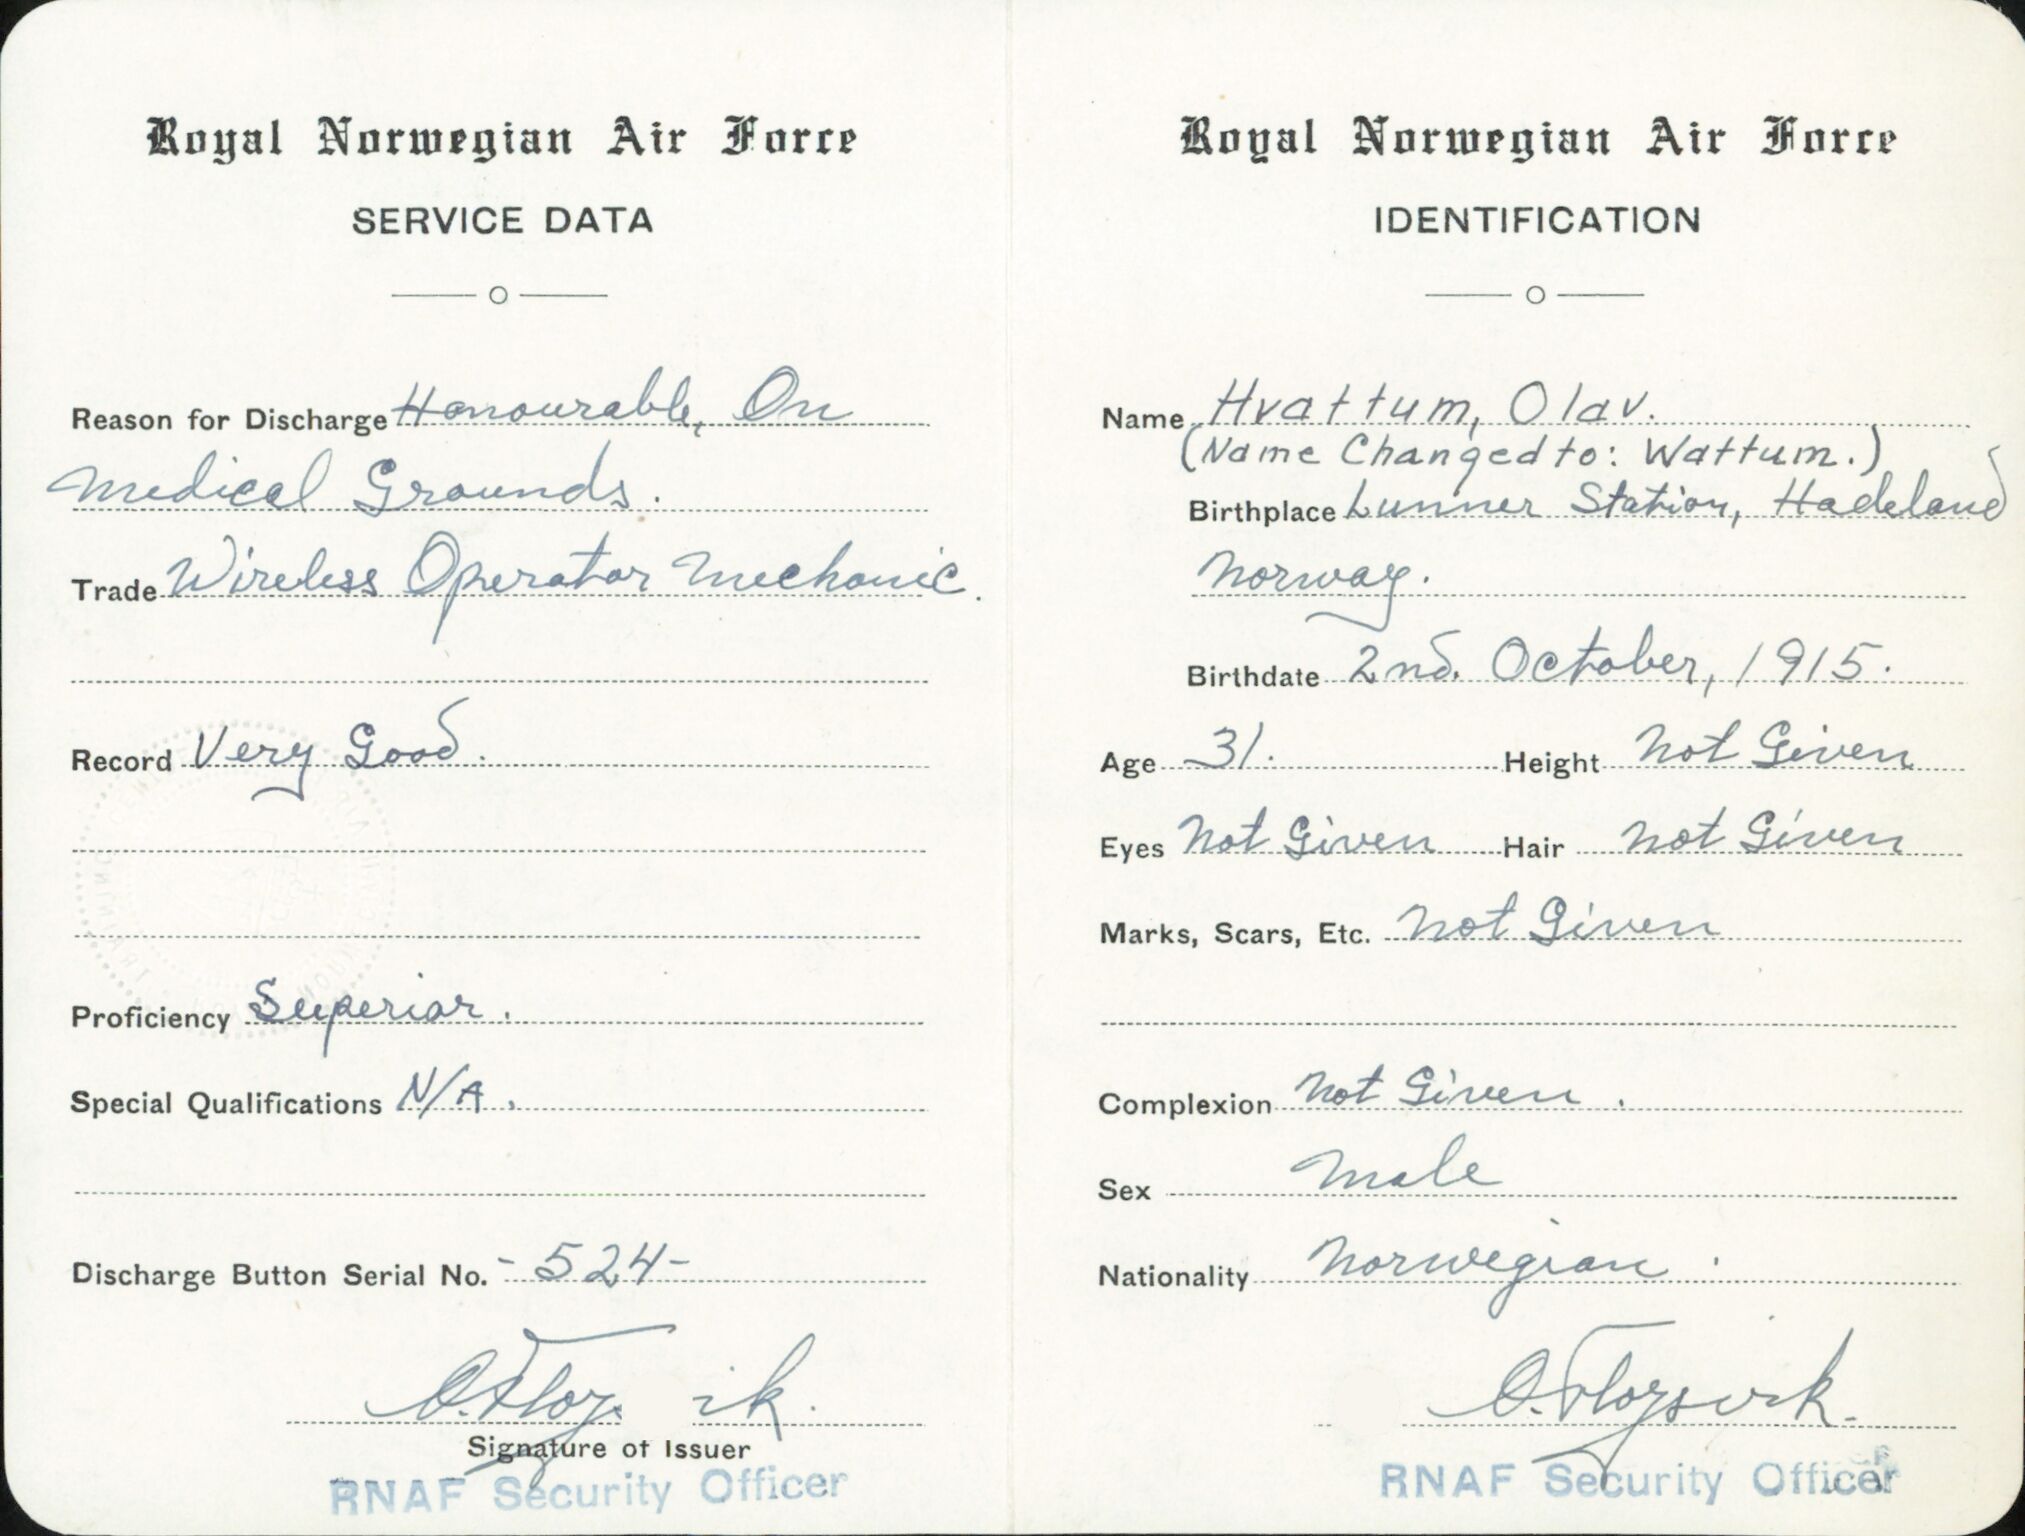 Royal Norwegian Air Force
SERVICE DATA
Reason for Discharge Honourable, On
Medical Grounds.
Trade Wireless Operator Mechanic.
Record Very Good.
Proficiency Superior.
Special Qualifications N/A.
Discharge Button Serial No. -524-
Signature of Issuer
RNAF Security Officer
Royal Norwegian Air Force
IDENTIFICATION
Name Hvattum, Olav.
(Name Changed to: Wattum.)
Birthplace Lunner Station, Hadeland
Norway.
Birthdate 2nd. October, 1915.
Age 31. Height Not Given
Eyes Not Given Hair Not Given
Marks, Scars, Etc. Not Given
Complexion Not Given.
Sex Male
Nationality Norwegian.
RNAF Security Officer